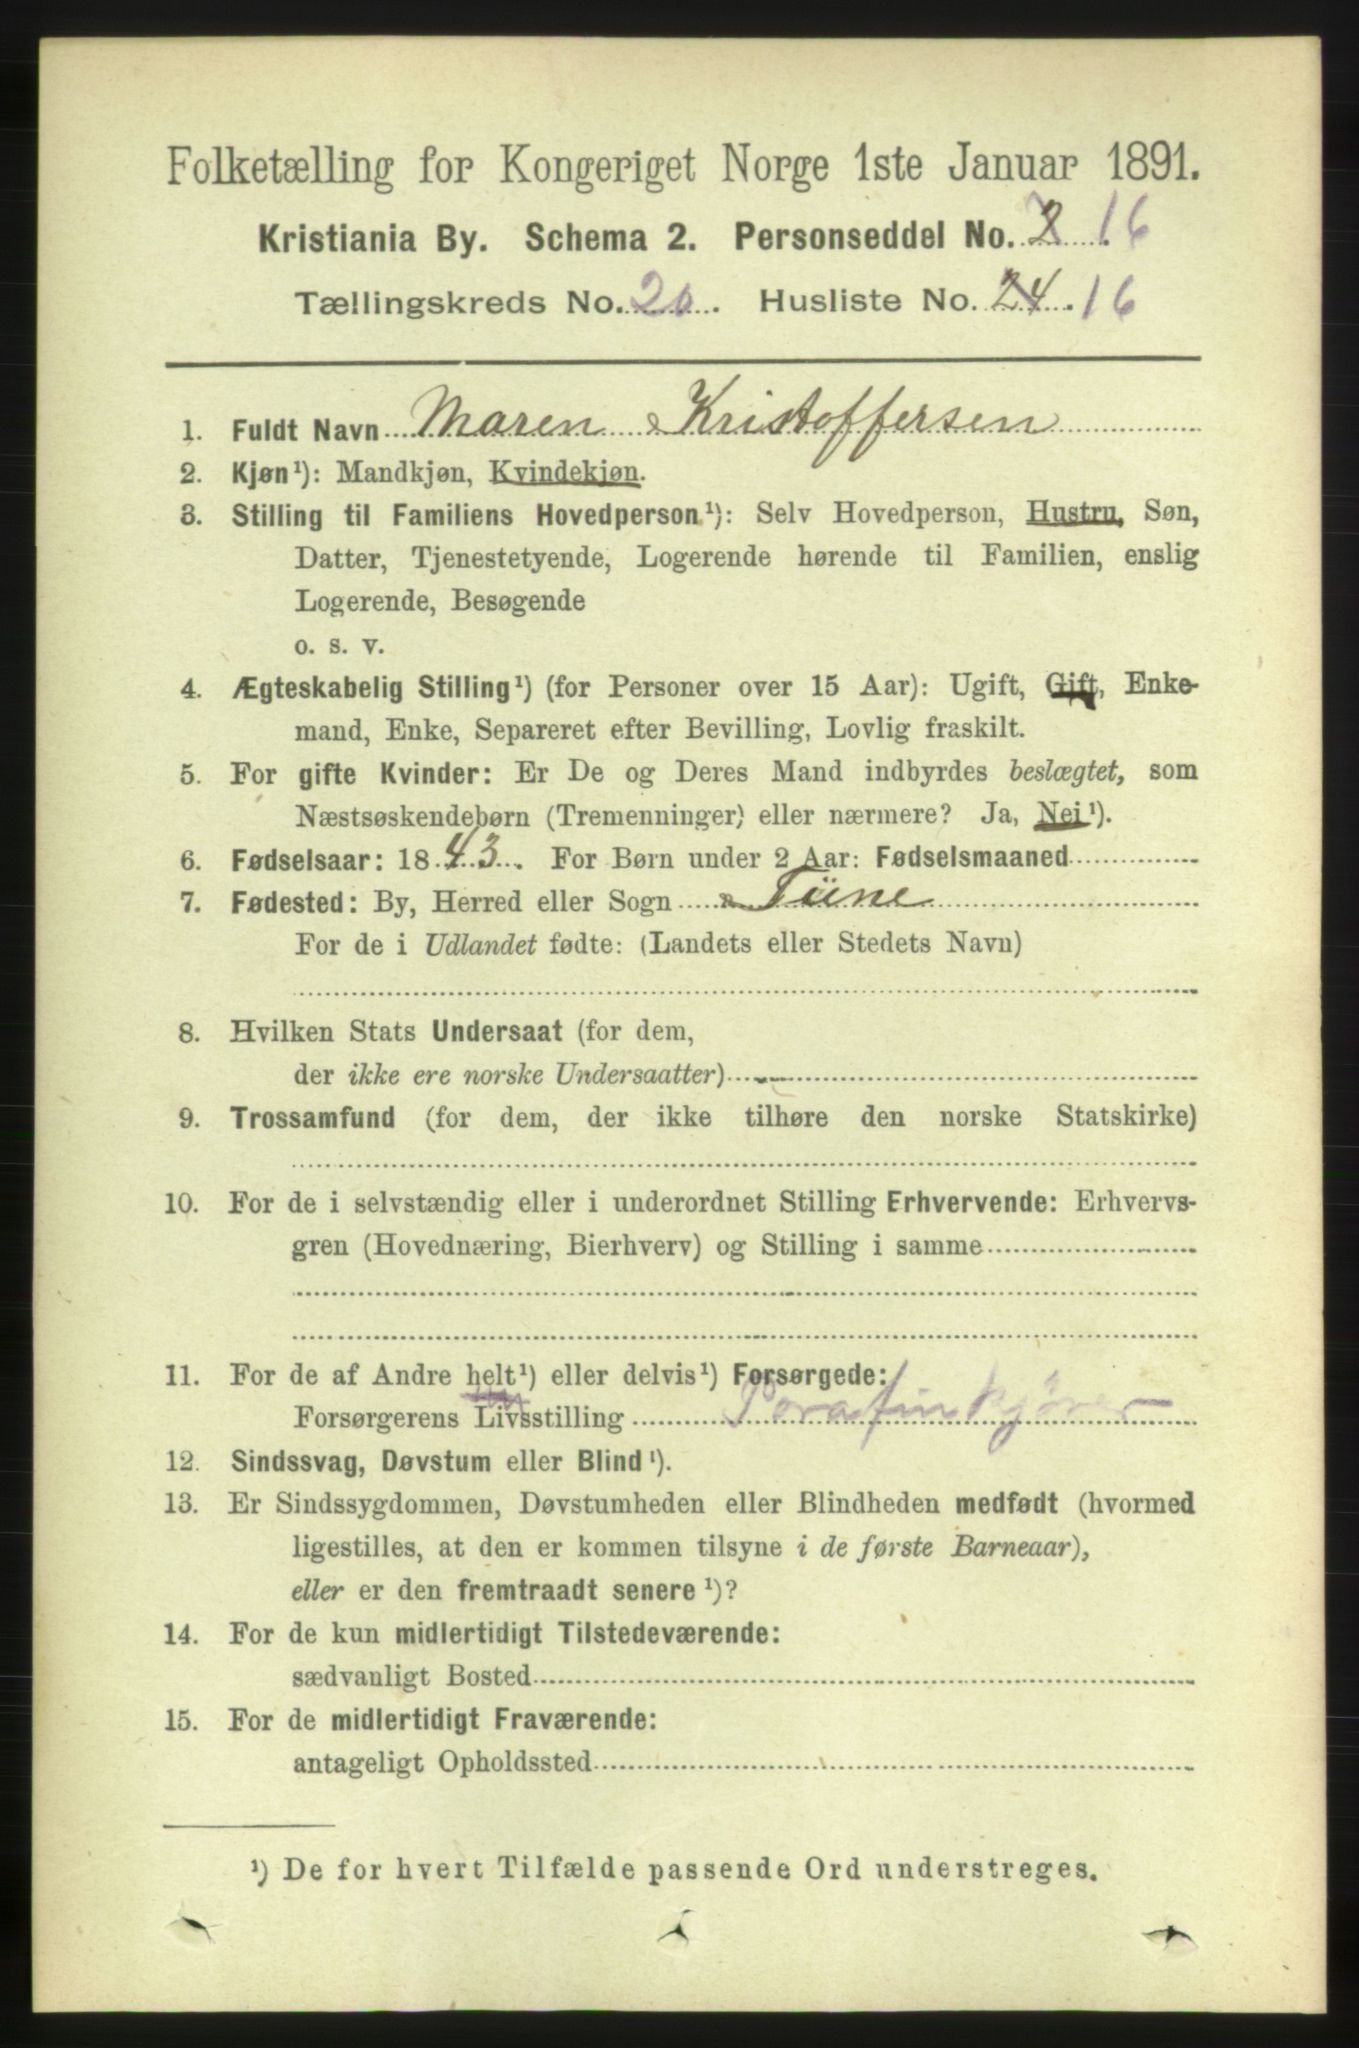 Folketælling for Kongeriget Norge 1ste Januar 1891.
Kristiania By. Schema 2. Personseddel No. 2 16
Tællingskreds No. 20. Husliste No. 24. 16
1. Fuldt Navn Maren Kristoffersen
2. Kjøn¹): Mandkjøn, Kvindekjøn.
3. Stilling til Familiens Hovedperson¹): Selv Hovedperson, Hustru, Søn,
Datter, Tjenestetyende, Logerende hørende til Familien, enslig
Logerende, Besøgende
o. s. v.
4. Ægteskabelig Stilling¹) (for Personer over 15 Aar): Ugift, Gift, Enke-
mand, Enke, Separeret efter Bevilling, Lovlig fraskilt.
5. For gifte Kvinder: Er De og Deres Mand indbyrdes beslægtet, som
Næstsøskendebørn (Tremenninger) eller nærmere? Ja, Nei¹).
6. Fødselsaar: 1843. For Børn under 2 Aar: Fødselsmaaned
7. Fødested: By, Herred eller Sogn Tüne
For de i Udlandet fødte: (Landets eller Stedets Navn)
8. Hvilken Stats Undersaat (for dem,
der ikke ere norske Undersaatter)
9. Trossamfund (for dem, der ikke tilhøre den norske Statskirke)
10. For de i selvstændig eller i underordnet Stilling Erhvervende: Erhvervs-
gren (Hovednæring, Bierhverv) og Stilling i samme
11. For de af Andre helt¹) eller delvis¹) Forsørgede:
Forsørgerens Livsstilling Parafinkjører
12. Sindssvag, Døvstum eller Blind¹).
13. Er Sindssygdommen, Døvstumheden eller Blindheden medfødt (hvormed
ligestilles, at den er kommen tilsyne i de første Barneaar),
eller er den fremtraadt senere¹)?
14. For de kun midlertidigt Tilstedeværende:
sædvanligt Bosted
15. For de midlertidigt Fraværende:
antageligt Opholdssted
¹) De for hvert Tilfælde passende Ord understreges.